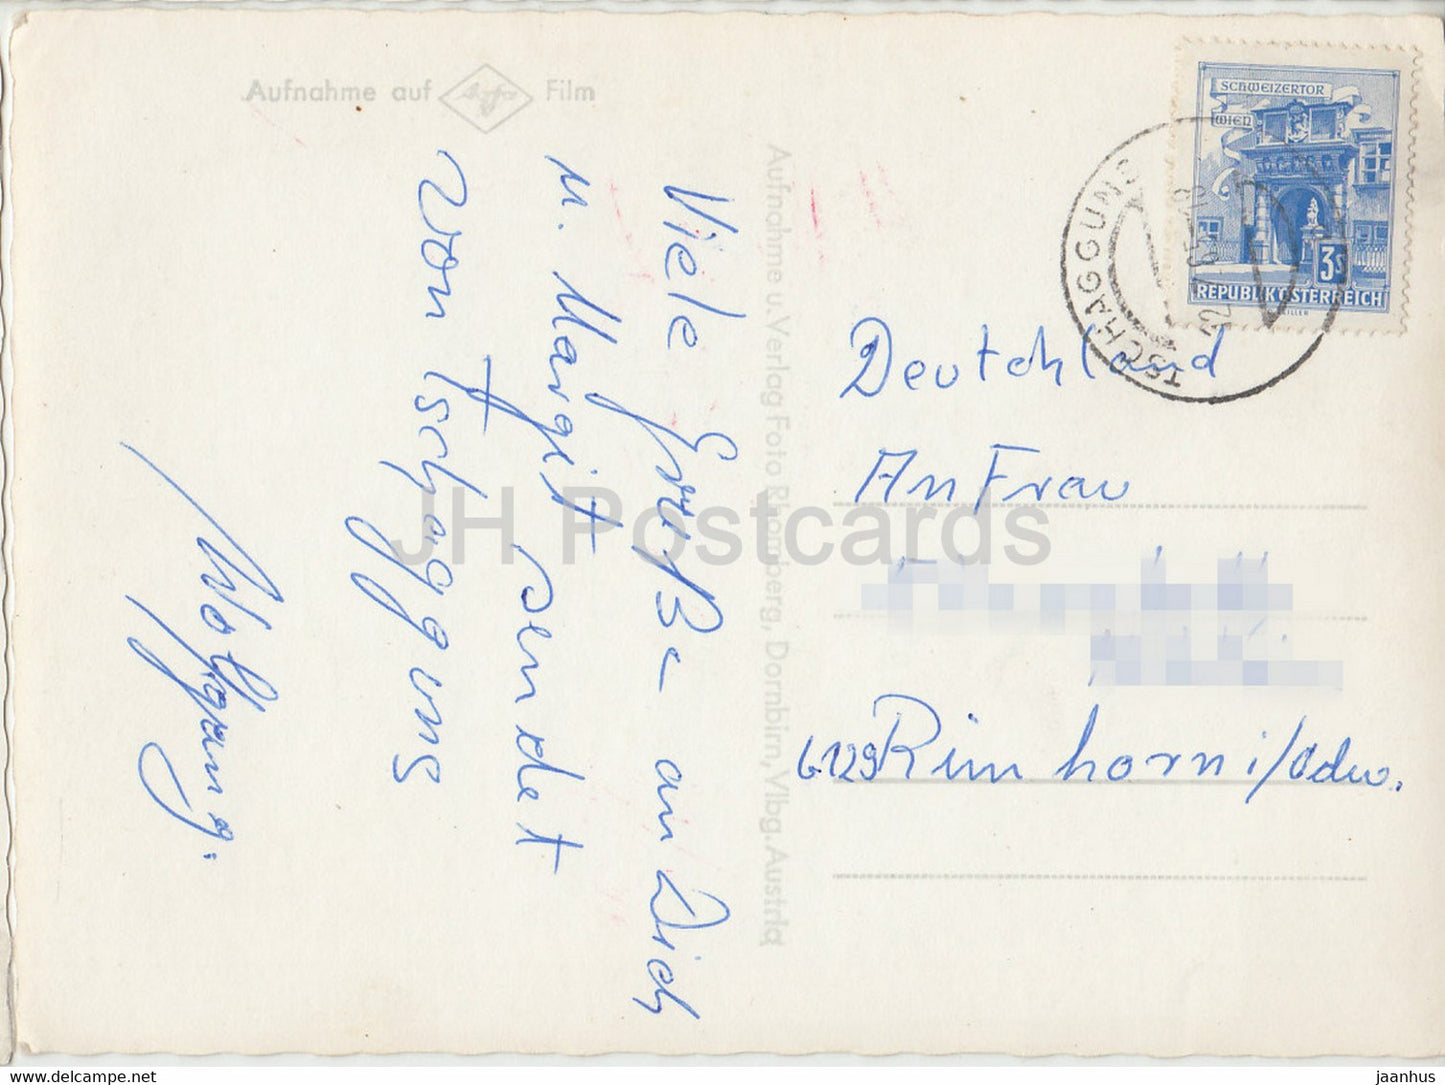 Aufnahme auf Agfa Film
Viele Grüße an Dich
u. Margit sendet
von Tschagguns
Wolfgang.
Aufnahme u. Verlag Foto Rhomberg, Dornbirn, Vlbg. Austria
SCHWEIZERTOR
WIEN
3S
REPUBLIK ÖSTERREICH
TSCHAGGUNS
Deutchland
An Frau
6129 Rimhorn i/Odw.
JH Postcards
www.delcampe.net
jaanhus